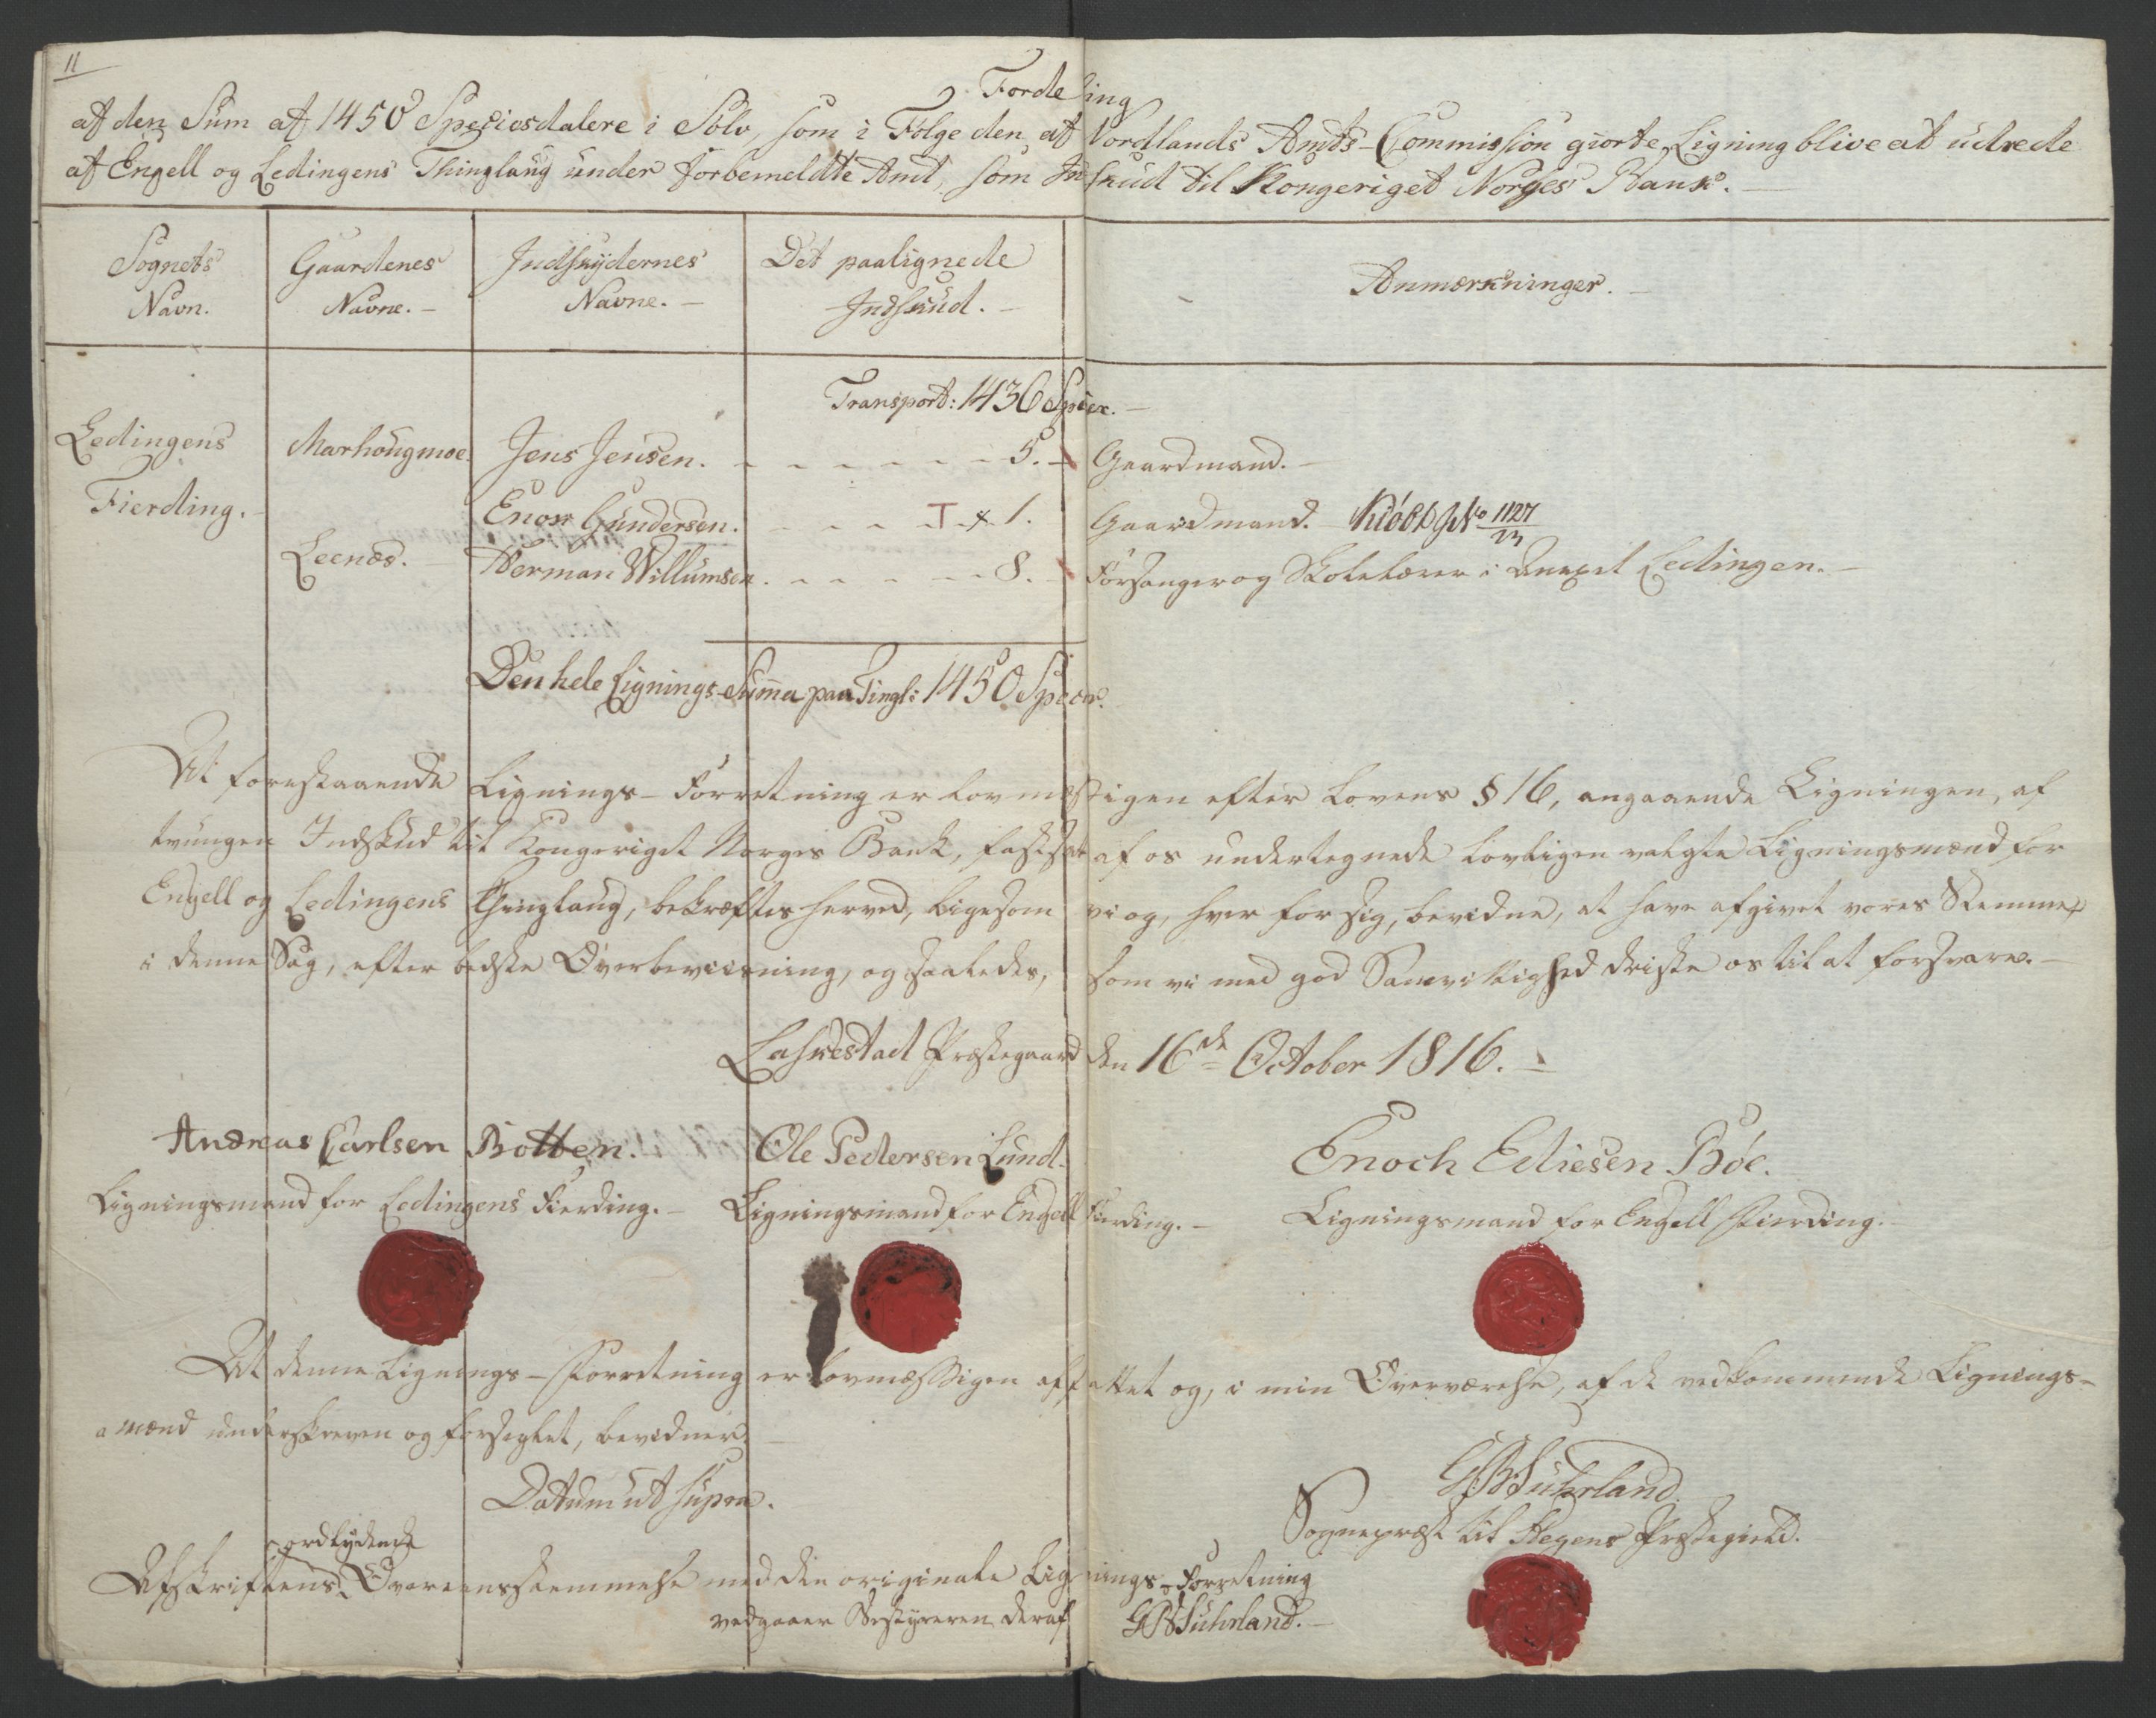 11
Fordeling
af den Sum af 1450 Speciesdalere i Sølv, som i Følge den af Nordlands Amts-Commission giorte Ligning blive at udrede
af Engell og Ledingens Thinglaug under forbemeldte Amt, som Indskud til Kongeriget Norges Bank. —
Sognets Navn.
Gaardenes Navne. —
Indskydernes Navne. —
Det paalignede Indskud. —
Anmærkninger. —
Transport: 1436 Specier. —
Ledingens Marhougmoe. Jens Jensen. - - - - - - 5. — Gaardmand. —
Fierding. — Enok Gundersen. - - - - T x 1. Gaardmand. Kiøbt No 1127
Leenæs. Herman Willumsen. - - - - - 8. Forsanger og Skolelærer i Annexet Ledingen. —
Den hele Lignings-Summa paa Tingl: 1450 Specier.
At forestaaende Lignings-Forretning er lovmæssigen efter Lovens § 16, angaaende Ligningen, af
tvungen Indskud til Kongeriget Norges Bank, fastsat af os undertegnede lovligen valgte Ligningsmænd for
Engell og Ledingens Thinglaug, bekræftes herved, ligesom vi og, hver for sig, bevidne, at have afgivet vores Stemmer
i denne Sag, efter bedste Overbeviisning, og saaledes, som vi med god Samvittighed driste os til at forsvare. —
Laskestad Præstegaard den 16de October 1816. —
Andreas Carlsen Botten. Ole Pedersen Lund. Enoch Ediesen Bøe.
Ligningsmand for Ledingens Fierding. — Ligningsmand for Engell Fierding. — Ligningsmand for Engell Fierding. —
At denne Lignings-Forretning er lovmæssigen affattet og, i min Overværelse, af de vedkommende Lignings-
mænd underskreven og forseglet, bevidner.
Datum ut supra.
GBSuhrland.
Sognepræst til Stegens Præstegield.
ordlydende
Afskriftens Overeensstemmelse med den originale Lignings-Forretning
vedgaaer Bestyreren deraf GBSuhrland. —